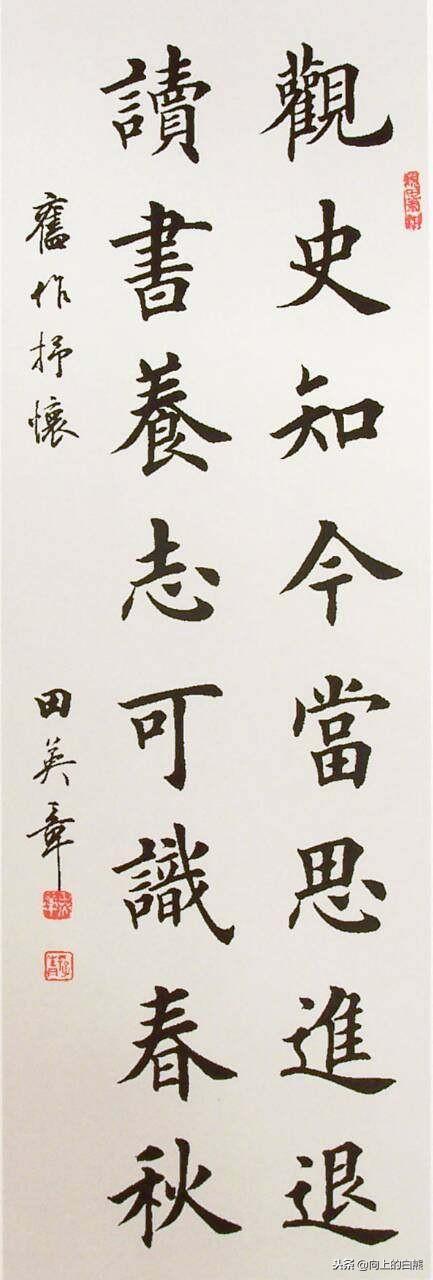 觀史知今當思進退
讀書養志可識春秋
舊作抒懷
田英章
头条 @向上的白熊